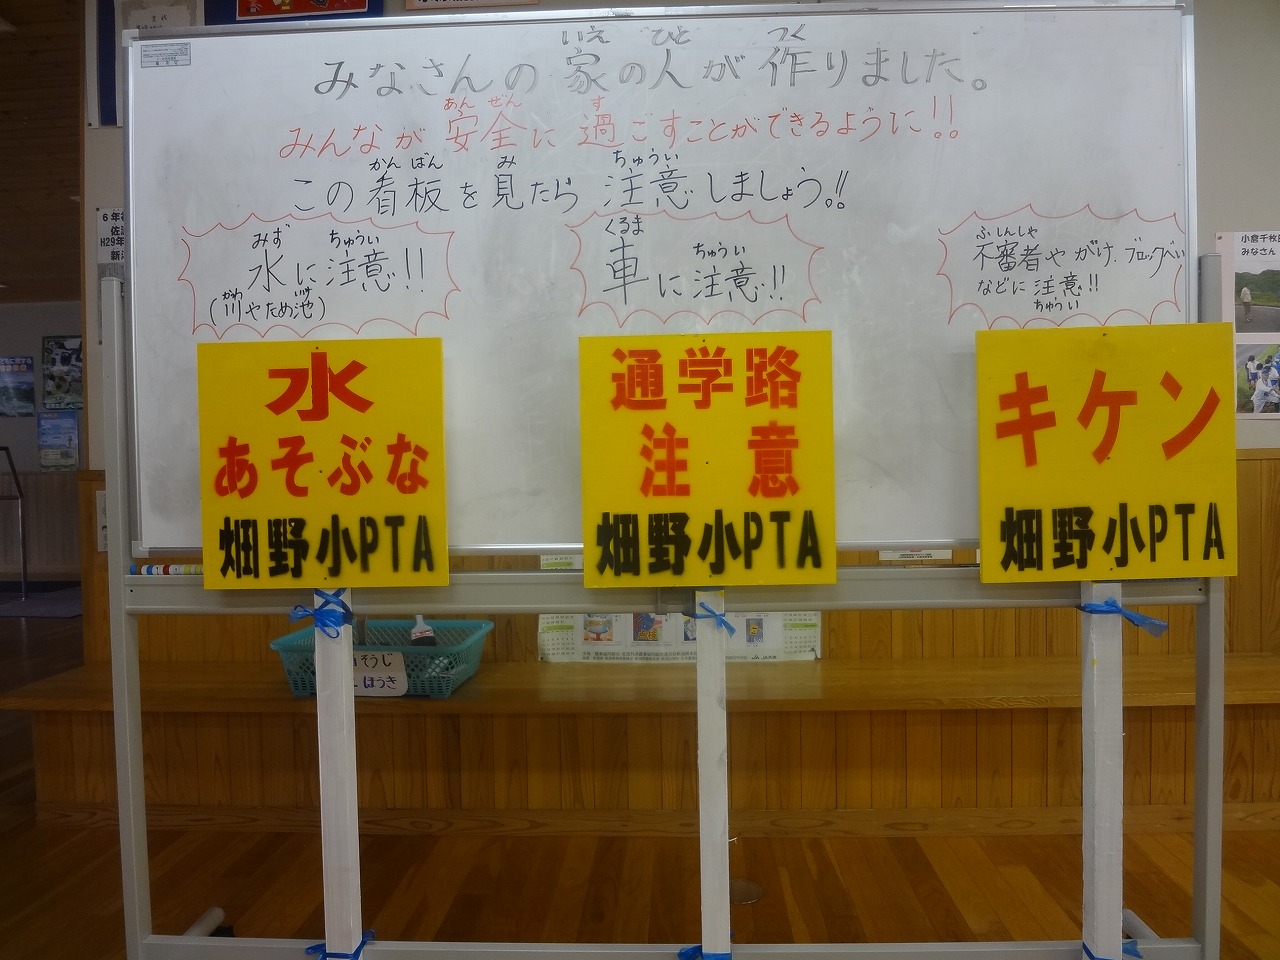 みなさんの家の人が作りました。
いえ ひと つく
みんなが安全に過ごすことができるように!!
あん ぜん す
この看板を見たら注意しましょう!!
かん ばん み ちゅうい
水に注意!!
みず ちゅうい
(川やため池)
かわ いけ
車に注意!!
くるま ちゅうい
不審者やがけ、ブロックべい
ふしんしゃ
などに注意!!
ちゅうい
水
あそぶな
畑野小PTA
通学路
注意
畑野小PTA
キケン
畑野小PTA
そうじ
ほうき
6年
H29年
小倉千枚田
みなさん